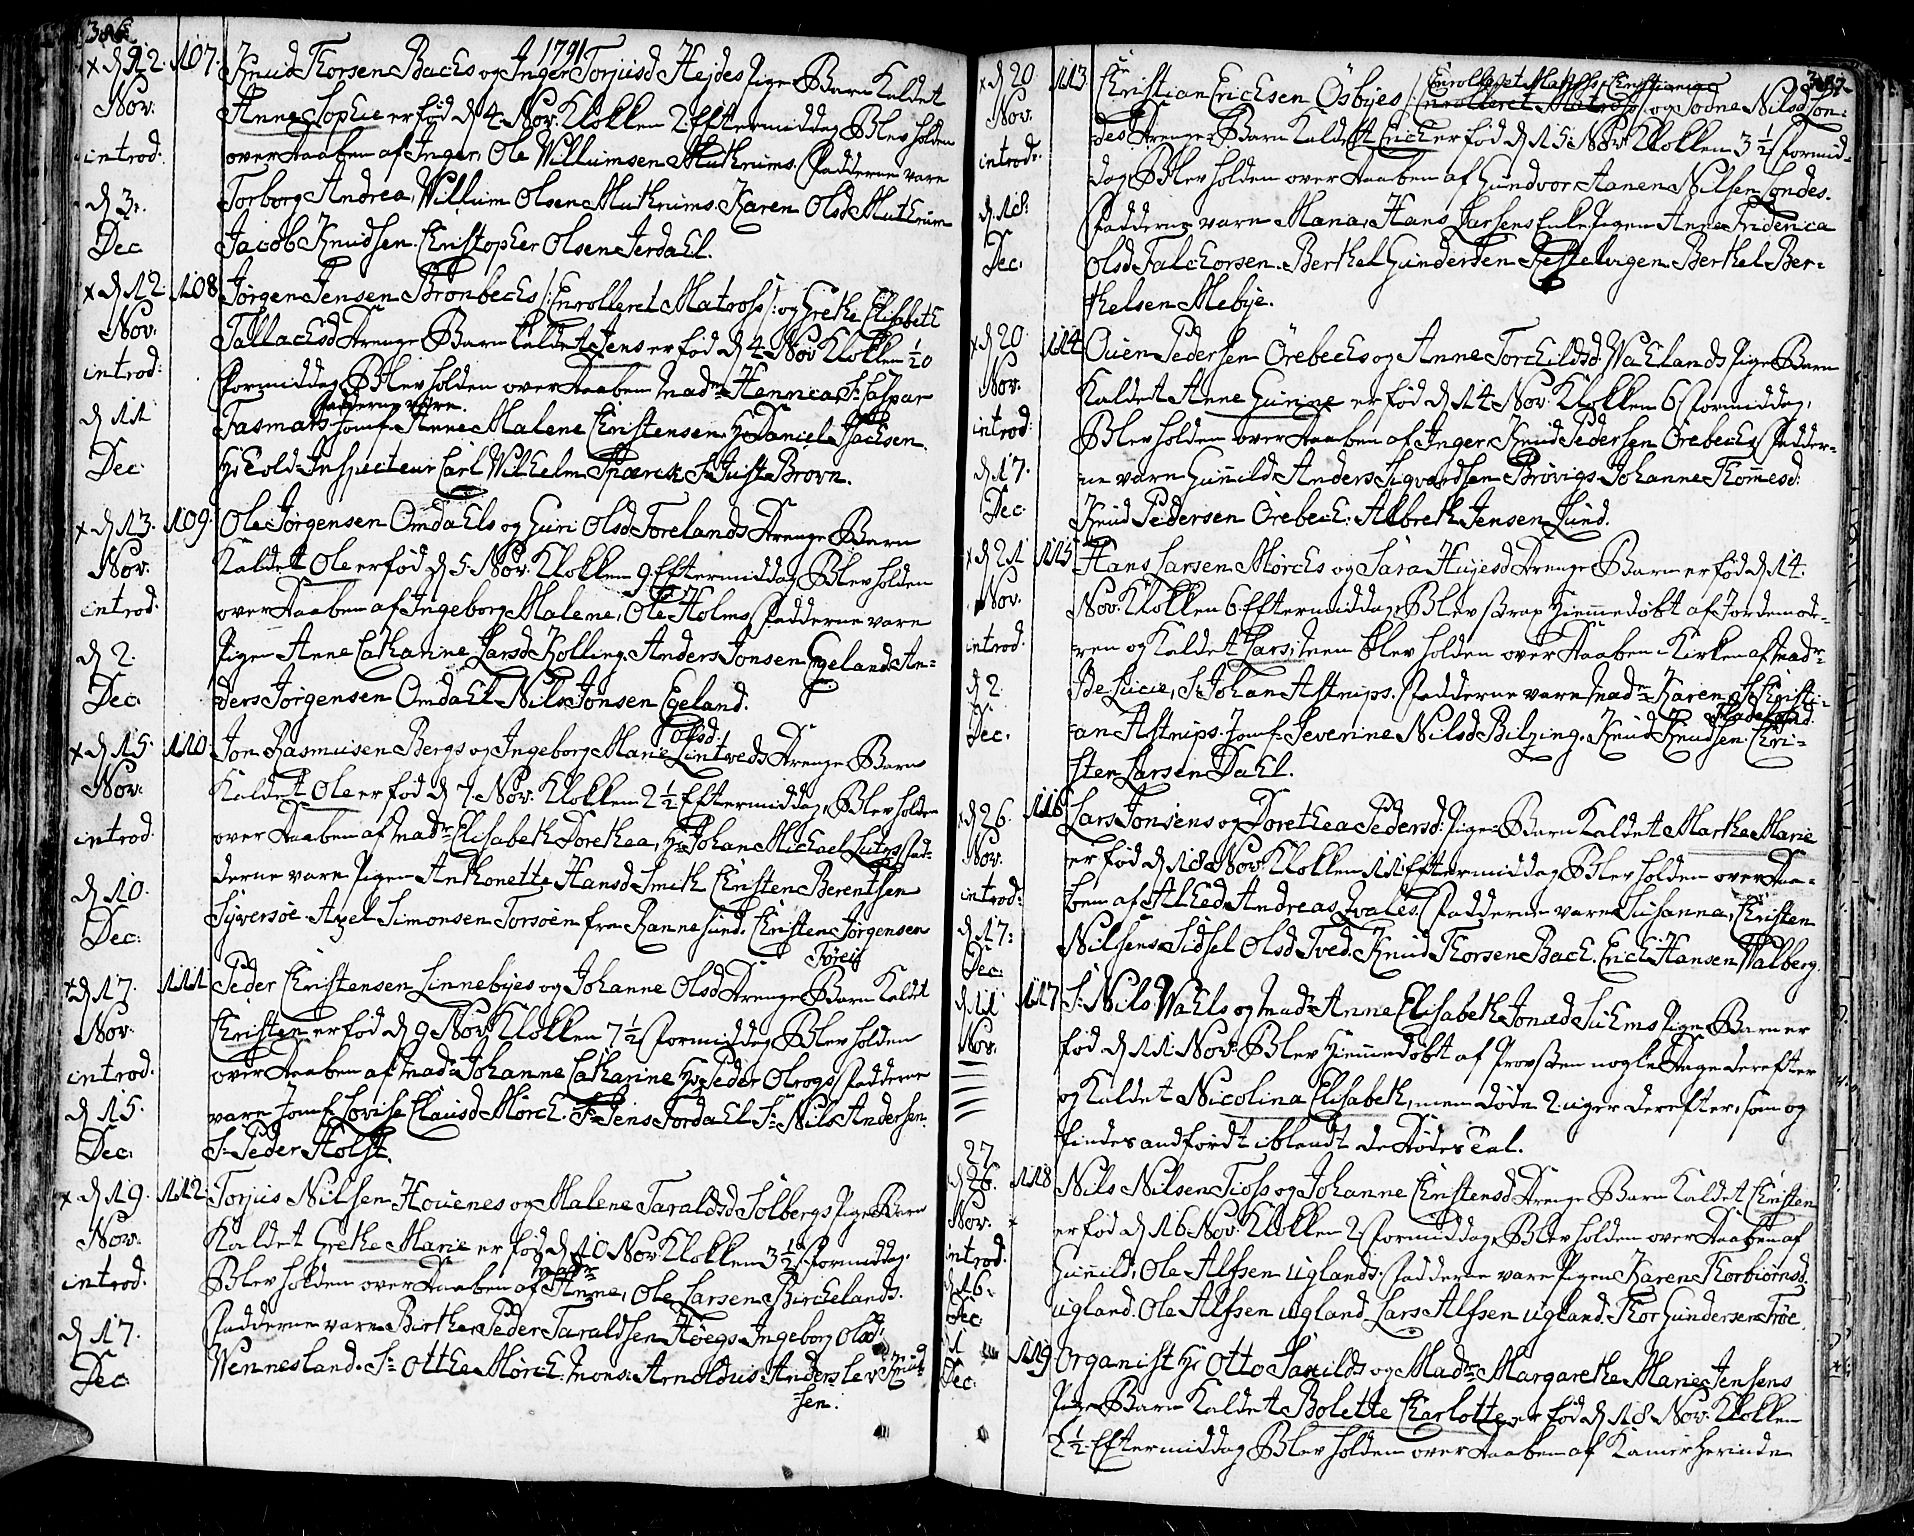 386.
1791
x d 12. 107. Knud Thorsen Bachs og Inger Torjusd Hejdes Pige Barn Kaldet
Nov: Anne Sophie er fød d 4 Nov: Klokken 2 Eftermiddag Blev holden
introd: over Daaben af Inger, Ole Willumsen Futhrums. Fadderne vare
d 3. Torborg Andrea, Willum Olsen Futhrums. Karen Olsd Futhrum
Dec Jacob Knudsen. Christopher Olsen Jerdahl.
x d 12. 108 Jørgen Jensen Brønbechs /: Enrolleret Matross :/ og Grethe Elisabeth
Nov: Tallachsd Drenge Barn kaldet Jens er fød d 4 Nov Klokken ½ 10
introd: Formiddag Blev holden over Daaben Madme Hennica, Sr Caspar
Fadderne vare.
d 11 Fasmars Jomf: Anne Malene Christensen. Hr Daniel Isachsen.
Dec: Hr Told-Inspecteur Carl Wilhelm Spærck Sr Just Brovn.
x d 13. 109. Ole Jørgensen Omdahls og Guri Olsd Torelands Drenge Barn
Nov: Kaldet Ole er fød d 5 Nov. Klokken 9 Eftermiddag Blev holden
introd: over Daaben af Ingeborg Malene, Ole Holms Fadderne vare
d 2. Pigen Anne Catharine Larsd Kolling. Anders Jonsen Egeland An-
Dec: ders Jørgensen Omdahl Nils Jonsen Egeland.
Olsd:
x d 15. 110 Jon Rasmusen Bergs og Ingeborg Marie Lintveds Drenge Barn
Nov: Kaldet Ole er fød d 7. Nov: Klokken 2½ Eftermiddag, Blev holden
introd over Daaben af Madme Elisabeth Dorethea, Hr Johan Michael Luters Fad-
d 10. derne vare Pigen Anthonette Hansd Smith Christen Berentsen
Dec: Syversøe Axel Simonsen Torsøen fra Rannesund. Christen Jørgensen
Toreis
x d 17. 111 Peder Christensen Linnebyes og Johanne Olsd Drenge Barn Kaldet
Nov: Christen er fød d 9 Nov: Klokken 7½ Formiddag Blev holden
introd. over Daaben af Madme Johanne Catharine Hr Peder Olrogs Fadderne
d 15. vare Jomf Lovise Clausd Mørch. Sr Jens Jordahl Sr: Nils Andersen.
Dec: Sr Peder Holst.
x d 19. 112. Torjus Nilsen Hovenes og Malene Taraldsd Solbergs Pige Barn
Nov: Kaldet Grethe Marie er fød d 10 Nov: Klokken 3½ Formiddag.
introd. Blev holden over Daaben af Anne, Ole Larsen Birchelands.
d 17. Fadderne vare Birthe, Peder Taraldsen Høegs Ingeborg Olsd:
Dec Wennesland. Sr: Otthe Mørch. Mons: Arnoldus Anderslev Knud-
sen.
387
Enrolleret Matros
x d 20. 113 Christian Erichsen Osbyes og Todne Nilsd Lon-
Nov. des Drenge Barn Kaldet Erich er fød d 15. Nov: Klokken 3½ Formid-
introd: dag. Blev holden over Daaben af Gundvor Aanen Nilsen Londes.
d 18. Fadderne vare Maria, Hans Larsens Enke Pigen Anne Friderica
Dec. Olsd Falchorsen. Berthel Gundersen Kesselvigen. Berthel Ber-
thelsen Mebye.
x d 20 114 Ouen Pedersen Ørebechs og Anne Torchildsd Wahlands Pige Barn
Nov. Kaldet Anne Gurine er fød d 14 Nov. Klokken 6 Formiddag,
introd: Blev holden over Daaben af Inger Knud Pedersen Ørebechs Fadder-
d 17. ne vare Gunild Anders Sigvardsen Brøvigs Johanne Thomesd.
Dec. Knud Pedersen Ørebech. Albreth Jensen Lund.
x d 21 115 Hans Larsen Mørchs og Sara Hujesd Drenge Barn er fød d 14.
Nov. Nov. Klokken 6 Eftermiddag Blev strax Hiemmedøbt af Jordemode-
introd. ren og Kaldet Lars, men blev holden over Daaben i Kirken af Madme
d 2. Be Lucie, Sr Johan Astrups. Fadderne vare Madme Karen, Sr Christi-
Dec. an Astrups. Jomf: Severine Nilsd Bilzing. Knud Knudsen Chri-
sten Larsen Dahl.
d 26. 116 Lars Jonsens og Dorethea Pedersd: Pige Barn Kaldet Martha Marie
Nov. er fød d 18 Nov. Klokken 11 Eftermiddag Blev holden over Daa-
introd: ben af Alhed Andreas Qvales. Fadderne vare Susanna, Christen
d 17. Nilsens Sidsel Olsd Tved. Knud Thorsen Bach. Erich Hansen Walberg.
Dec:
d 11 117 Sr: Nils Wahls og Madme Anne Elisabeth Jonæd Suhms Pige Barn er
Nov. fød d 11. Nov: Blev Hiemmedøbt af Provsten nogle Dage derefter
og Kaldet Nicolina Elisabeth, men døde 2 uger derefter, som og
findes andfördt iblandt de Dødes Tal.
27
d 26. 118 Nils Nilsen Tioss og Johanne Christensd Drenge Barn Kaldet Christen
Nov. er fød d 16 Nov. Klokken 2 Formiddag. Blev holden over Daaben af
introd. Gunild, Ole Alfsen Uglands. Fadderne vare Pigen Karen Thorbiørnsd.
d 16. Ugland. Ole Alfsen Ugland. Lars Alfsen Ugland. Thor Gundersen Troe.
Dec.
d 1 119 Organist Hr Otto Sanilds og Madme Margarethe Marie Jensens
Dec. Pige Barn Kaldet Bolette Charlotte er fød d 18 Nov: Klokken
2½ Eftermiddag Blev holden over Daaben af Kamerherinde